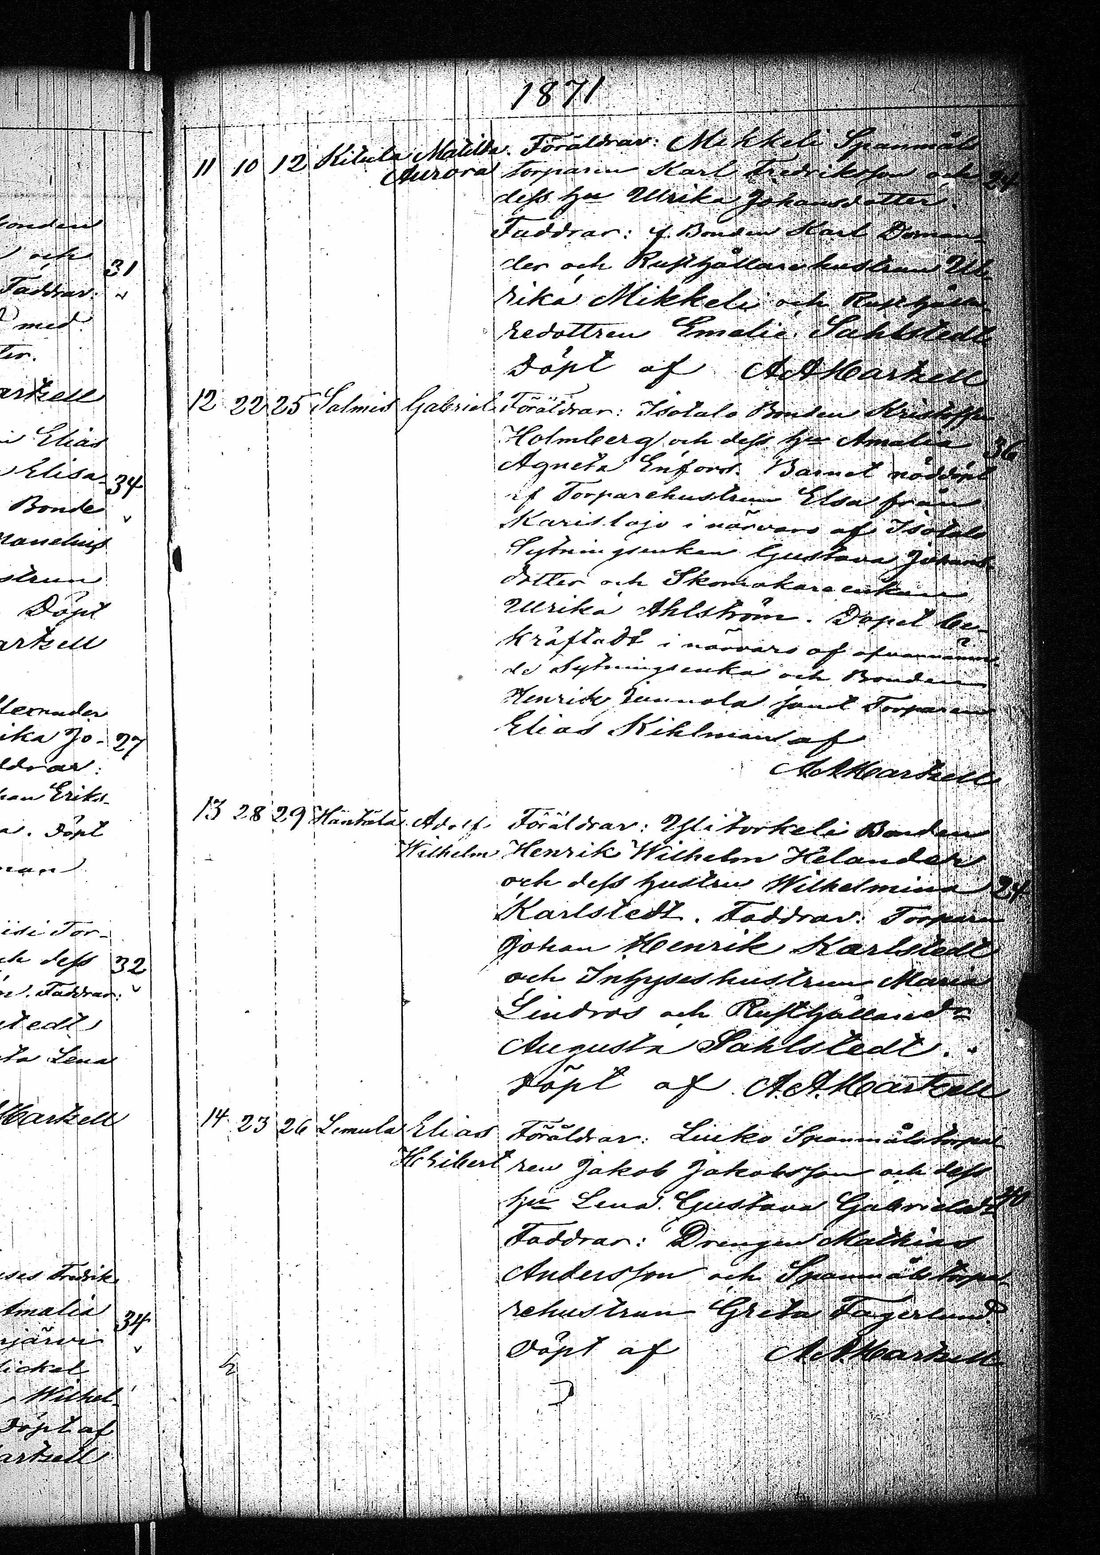 1871
11 10 12 Kitula Matilda Föräldrar: Mikkeli Spanmåls
Aurora torparen Karl Fredriksson och 24
dess hu Ulrika Johansdotter.
Faddrar: f. Bonden Karl Doman-
der och Rusthållarehustrun Ul-
rika Mikkeli och Rusthålla-
redottren Emelie Sahlstedt
Döpt af A A Markell
12 22 25 Salmis Gabriel Föräldrar: Isotalo Bonden Kristoffer
Holmberg och dess hu Amalia 36
Agneta Enfors. Barnet nöddöpt
af Torparehustrun Elsa från
Karislojo i närvaro af Isotalo
Sytningsenkan Gustava Johans-
dotter och Skomakareenkan
Ulrika Ahlström. Dopet be-
kräftadt i närvaro af ofvannämn-
de Sytningsenka och Bonden
Henrik samt Torparen
Elias Kihlman af
A A Markell
13 28 29 Adolf Föräldrar: Ylitorkeli Bonden
Wilhelm Henrik Wilhelm Helander
och dess hustru Wilhelmina 24
Karlstedt. Faddrar: Torparen
Johan Henrik Karlstedt
och Inhyseshustrun Maria
Lindros och Rusthållared:r
Augusta Sahlstedt.
Döpt af A. A. Markell
14 23 26 Lemula Elias Föräldrar: Spanmålstorpa-
Heribert ren Jakob Jakobsson och dess
hu Lena Gustava Gabrielsd:r 40
Faddrar: Drengen Mathias
Andersson och Spanmålstorpa-
rehustrun Greta Fagerlund
Döpt af A A Markell
och
31
Faddrar:
med
ter.
Elias
34
Bonde
Döpt
27
Döpt
Tor-
och dess
32
Faddrar:
Lena
Markell
Fredrik
Amalia
34
Mickel
Wilhel-
Döpt af